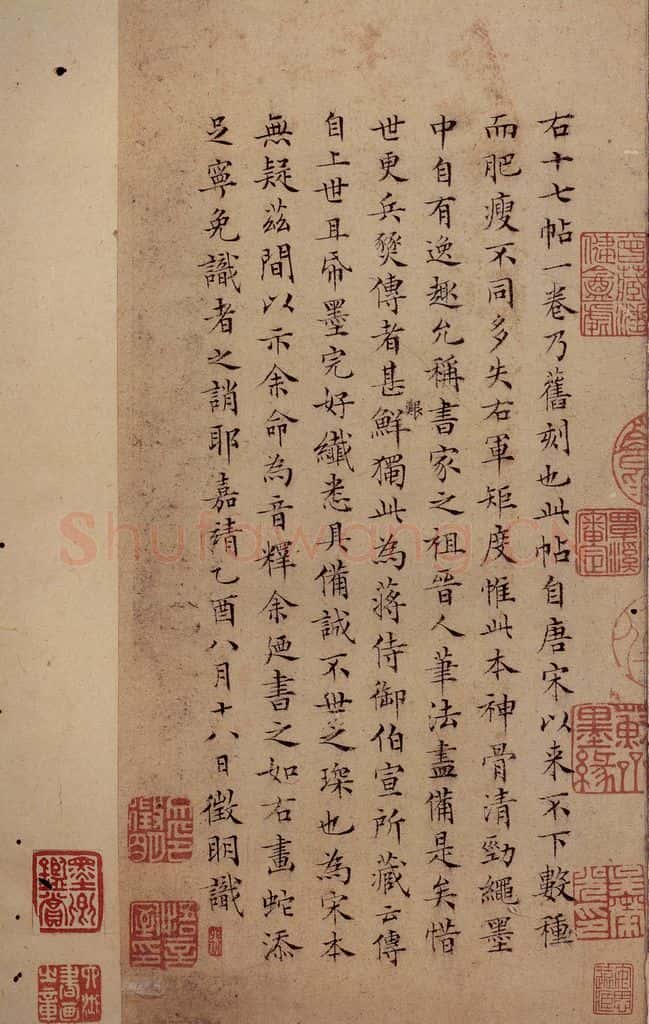 右十七帖一卷乃舊刻也此帖自唐宋以来不下數種
而肥瘦不同多失右軍矩度惟此本神骨清勁繩墨
中自有逸趣允稱書家之祖晉人筆法盡備是矣惜
世更兵燹傳者甚鮮獨此為蔣侍御伯宣所藏云傳
自上世且帋墨完好纖悉具備誠不世之琛也為宋本
無疑茲間以示余命為音釋余廼書之如右畫蛇添
足寧免識者之誚耶嘉靖乙酉八月十八日徵明識
覃溪
審定
蘇齋
墨緣
墨林
鑑賞
書画
之章
Shufawang.cn